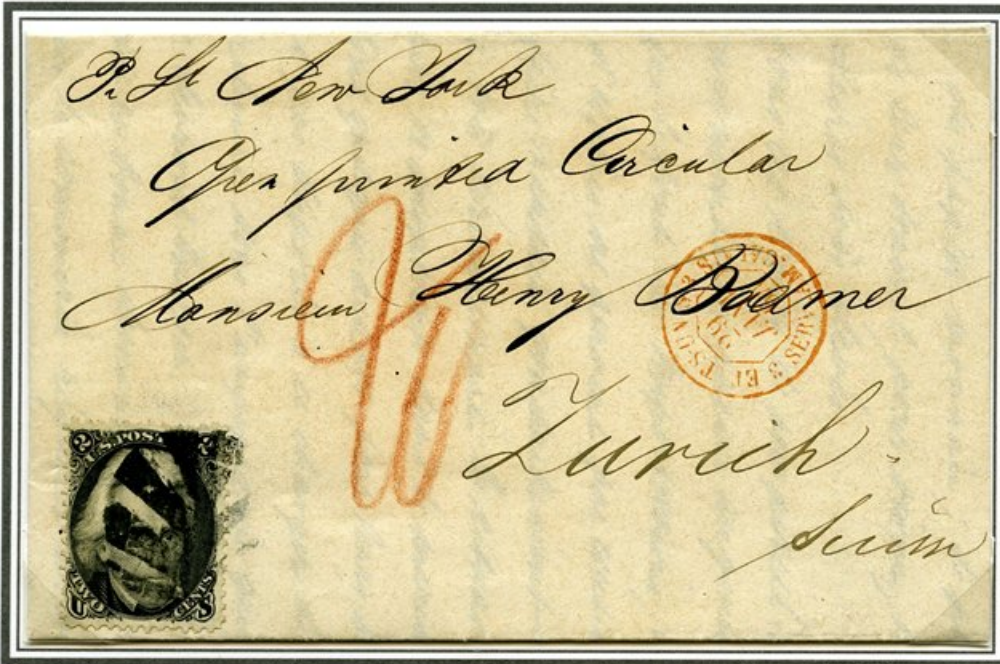 Pr St New York
Open printed Circular
Monsieur Henry Bodmer
Zurich
Suisse
3 SERV. 
2 U.S. POST 2
TWO CENTS
U S